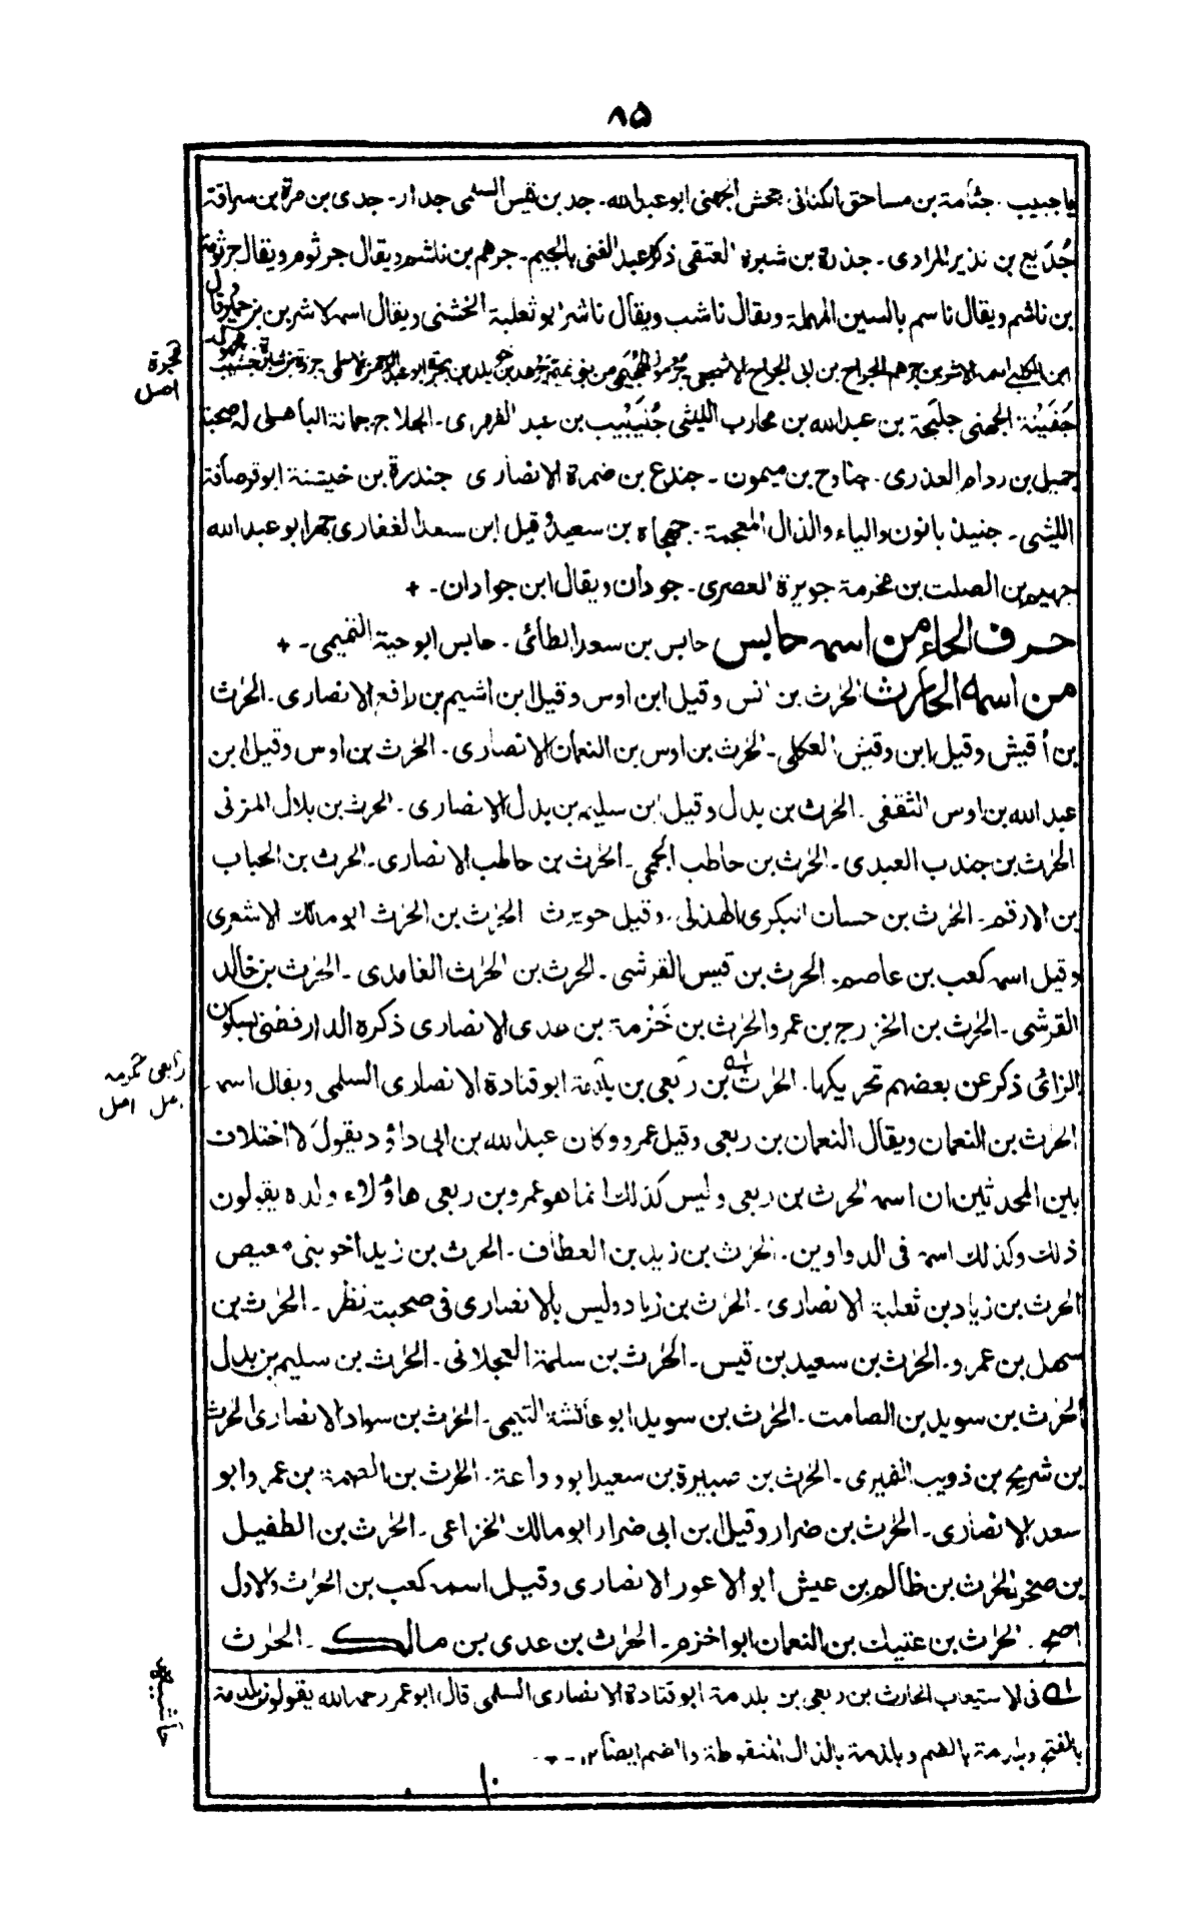 ٨٥
يا جبيب ۔ جثامة بن مساحق الكنانى جحش الجهنى ابو عبد الله ۔ جد بن قيس السلمى جدار ۔ جدى بن مرة بن سراقة
جُدَيع بن نذير المرادى ۔ جذرة بن شبرة العتقى ذكره عبد الغنى بالجيم ۔ جرهم بن ناشم ويقال جرثوم ويقال جرثومة
بن ناشم ويقال ناسم بالسين المهملة ويقال ناشب ويقال ناشر ابو ثعلبة الخشنى ويقال اسمه لاشر بن حمير وقال
ابن الكلبى اسمه الاشر بن جرهم الجراح بن ابى الجراح الاشجعى جرموز الهجيمى من بنى تميم جرهد بن خويلد بن بجرة ابو عبد الرحمن الاسلمى
جُفَيْنة الجهنى جليحة بن عبد الله بن محارب الليثى جُنَيْبِيب بن عبد الفهرى ۔ الجلاح جمانة الباهلى له صحبة
جميل بن ردام العذرى ۔ جناوح بن ميمون ۔ جندع بن ضمرة الانصارى جندرة بن خيشنة ابو قرصافة
الليثى ۔ جنيذ بالنون والياء والذال المعجمة ۔ جهجاه بن سعيد وقيل ابن سعد الغفارى جهر ابو عبد الله
جهيم بن الصلت بن مخرمة جويرة العصرى ۔ جودان ويقال ابن جوادان ۔ +
حرف الحاء من اسمه حابس حابس بن سعد الطائى ۔ حابس ابو حية التميمى ۔ +
من اسمه الحارث الحرث بن انس وقيل ابن اوس وقيل ابن اشيم بن رافع الانصارى ۔ الحرث
بن أقيش وقيل ابن وقيش العكلى ۔ الحرث بن اوس بن النعمان الانصارى ۔ الحرث بن اوس وقيل ابن
عبد الله بن اوس الثقفى ۔ الحرث بن بدل وقيل ابن سليم بن بدل الانصارى ۔ الحرث بن بلال المزنى
الحرث بن جندب العبدى ۔ الحرث بن حاطب الجمحى ۔ الحرث بن حاطب الانصارى ۔ الحرث بن الحباب
بن الارقم ۔ الحرث بن حسان البكرى الهذلى ۔ وقيل حويرث الحرث بن الحرث ابو مالك الاشعرى
وقيل اسمه كعب بن عاصم ۔ الحرث بن قيس القرشى ۔ الحرث بن الحرث الغامدى ۔ الحرث بن خالد
القرشى ۔ الحرث بن الخزرج بن عمر والحرث بن خَزْمة بن عدى الانصارى ذكره الدارقطنى بسكون
الزائ ذكر عن بعضهم تحريكها ۔ الحرث بن ربعى بن بلدمة ابو قتادة الانصارى السلمى ويقال اسمه
الحرث بن النعمان ويقال النعمان بن ربعى وقيل عمرو وكان عبد الله بن ابى داؤد يقول لا اختلاف
بين المحدثين ان اسمه الحرث بن ربعى وليس كذلك انما هو عمرو بن ربعى هاؤلاء ولده يقولون
ذلك وكذلك اسمه فى الدواوين ۔ الحرث بن زيد بن العطاف ۔ الحرث بن زيد اخو بنى معيص
الحرث بن زياد بن ثعلبة الانصارى ۔ الحرث بن زياد وليس بالانصارى فى صحبته نظر ۔ الحرث بن
سهل بن عمرو ۔ الحرث بن سعيد بن قيس ۔ الحرث بن سلمة العجلانى ۔ الحرث بن سليم بن بدل
الحرث بن سويد بن الصامت ۔ الحرث بن سويد ابو عائشة التيمى ۔ الحرث بن سواد الانصارى الحرث
بن شريح بن ذويب النميرى ۔ الحرث بن صبيرة بن سعيد ابو وداعة ۔ الحرث بن الصمة بن عمر وابو
سعد الانصارى ۔ الحرث بن ضرار وقيل ابن ابى ضرار ابو مالك الخزاعى ۔ الحرث بن الطفيل
بن صخر الحرث بن ظالم بن عيش ابو الاعور الانصارى وقيل اسمه كعب بن الحرث والاول
اصح ۔ الحرث بن عتيك بن النعمان ابو اخزم ۔ الحرث بن عدى بن مالك ۔ الحرث
فى الاستيعاب الحارث بن ربعى بن بلدمة ابو قتادة الانصارى السلمى قال ابو عمر رحمه الله يقولون بلدمة
بالفتح وبلدمة بالضم وبلذمة بالذال المنقوطة والضم ايضاً ۱۲ ۔ + ۔
بجرة
اصل
رابعى
اصل
حاشيه